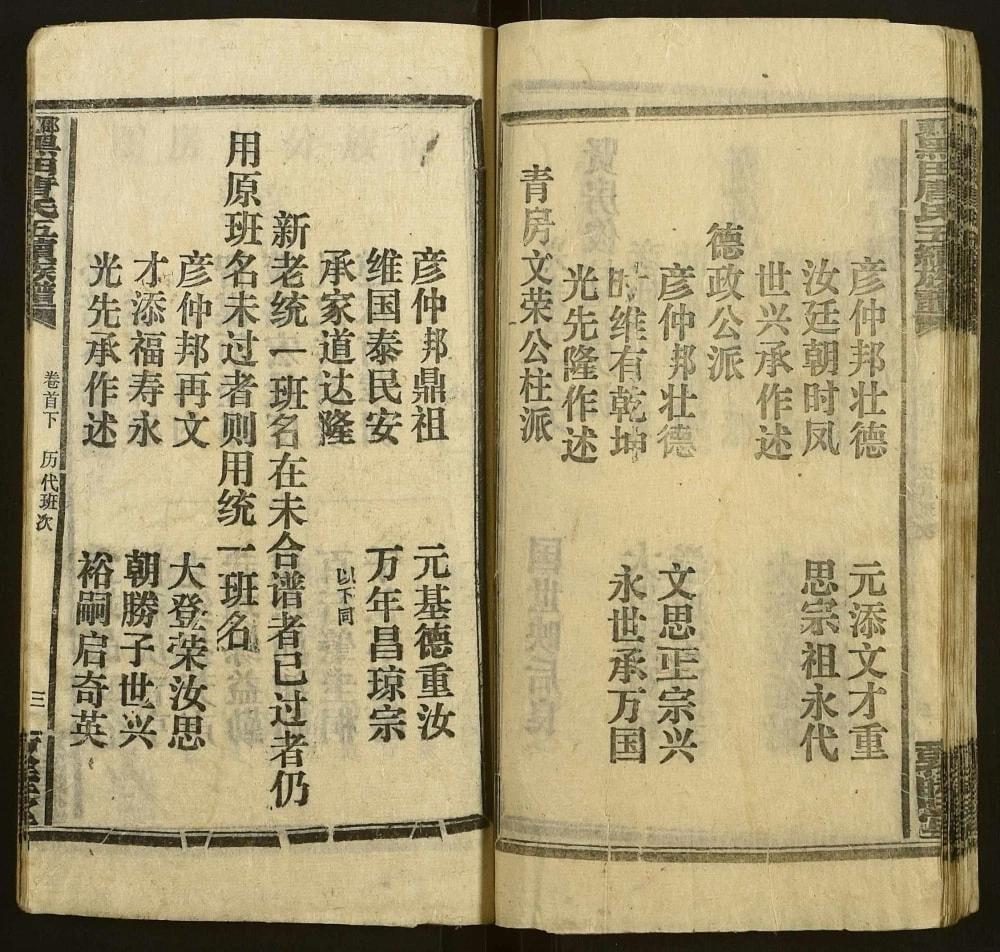 彦仲邦壮德 元添文才重
汝廷朝时凤 思宗祖永代
世兴承作述
德政公派
彦仲邦壮德 文思正宗兴
时维有乾坤 永世承万国
光先隆作述
青房文荣公柱派
彦仲邦鼎祖 元基德重汝
维国泰民安 万年昌琼宗
承家道达隆 以下同
新老统一班名在未合谱者已过者仍
用原班名未过者则用统一班名
彦仲邦再文 大登荣汝思
才添福寿永 朝勝子世兴
光先承作述 裕嗣启奇英
黑田唐氏五續族譜
卷首下 历代班次 三